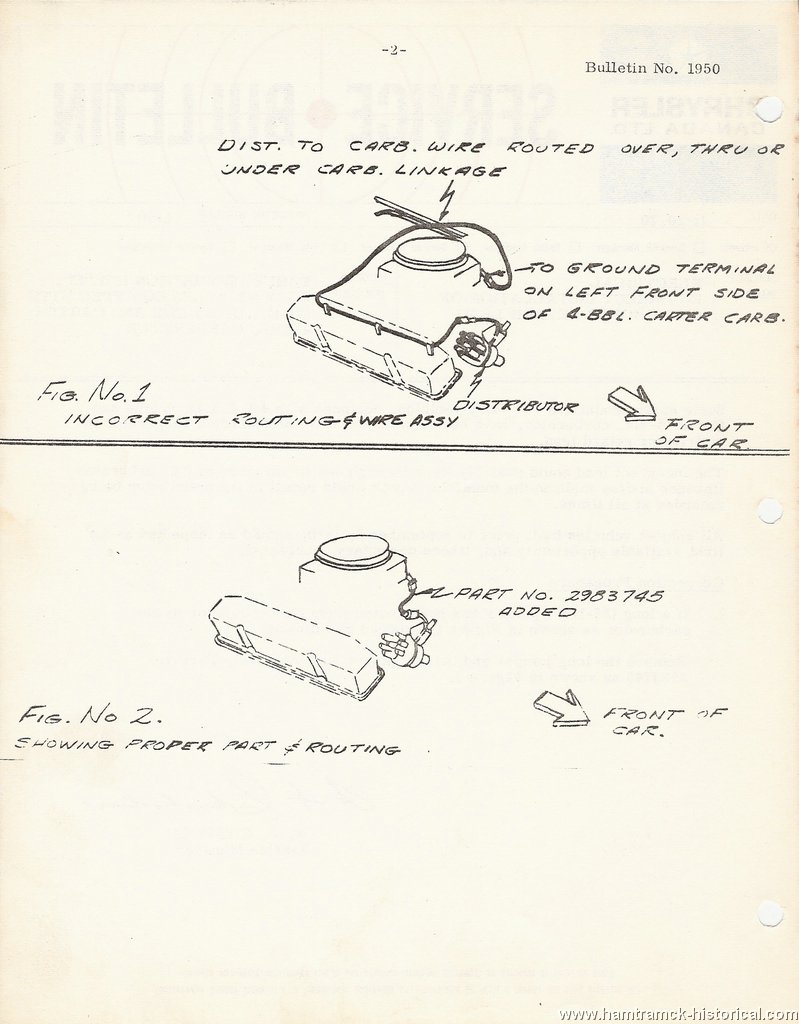 -2-
Bulletin No. 1950
DIST. TO CARB. WIRE ROUTED OVER, THRU OR
UNDER CARB. LINKAGE
TO GROUND TERMINAL
ON LEFT FRONT SIDE
OF 4-BBL. CARTER CARB.
FIG. No. 1
INCORRECT ROUTING & WIRE ASSY
DISTRIBUTOR
FRONT
OF CAR.
PART NO. 2983745
ADDED
FIG. No 2.
SHOWING PROPER PART & ROUTING
FRONT OF
CAR.
www.hamtramck-historical.com